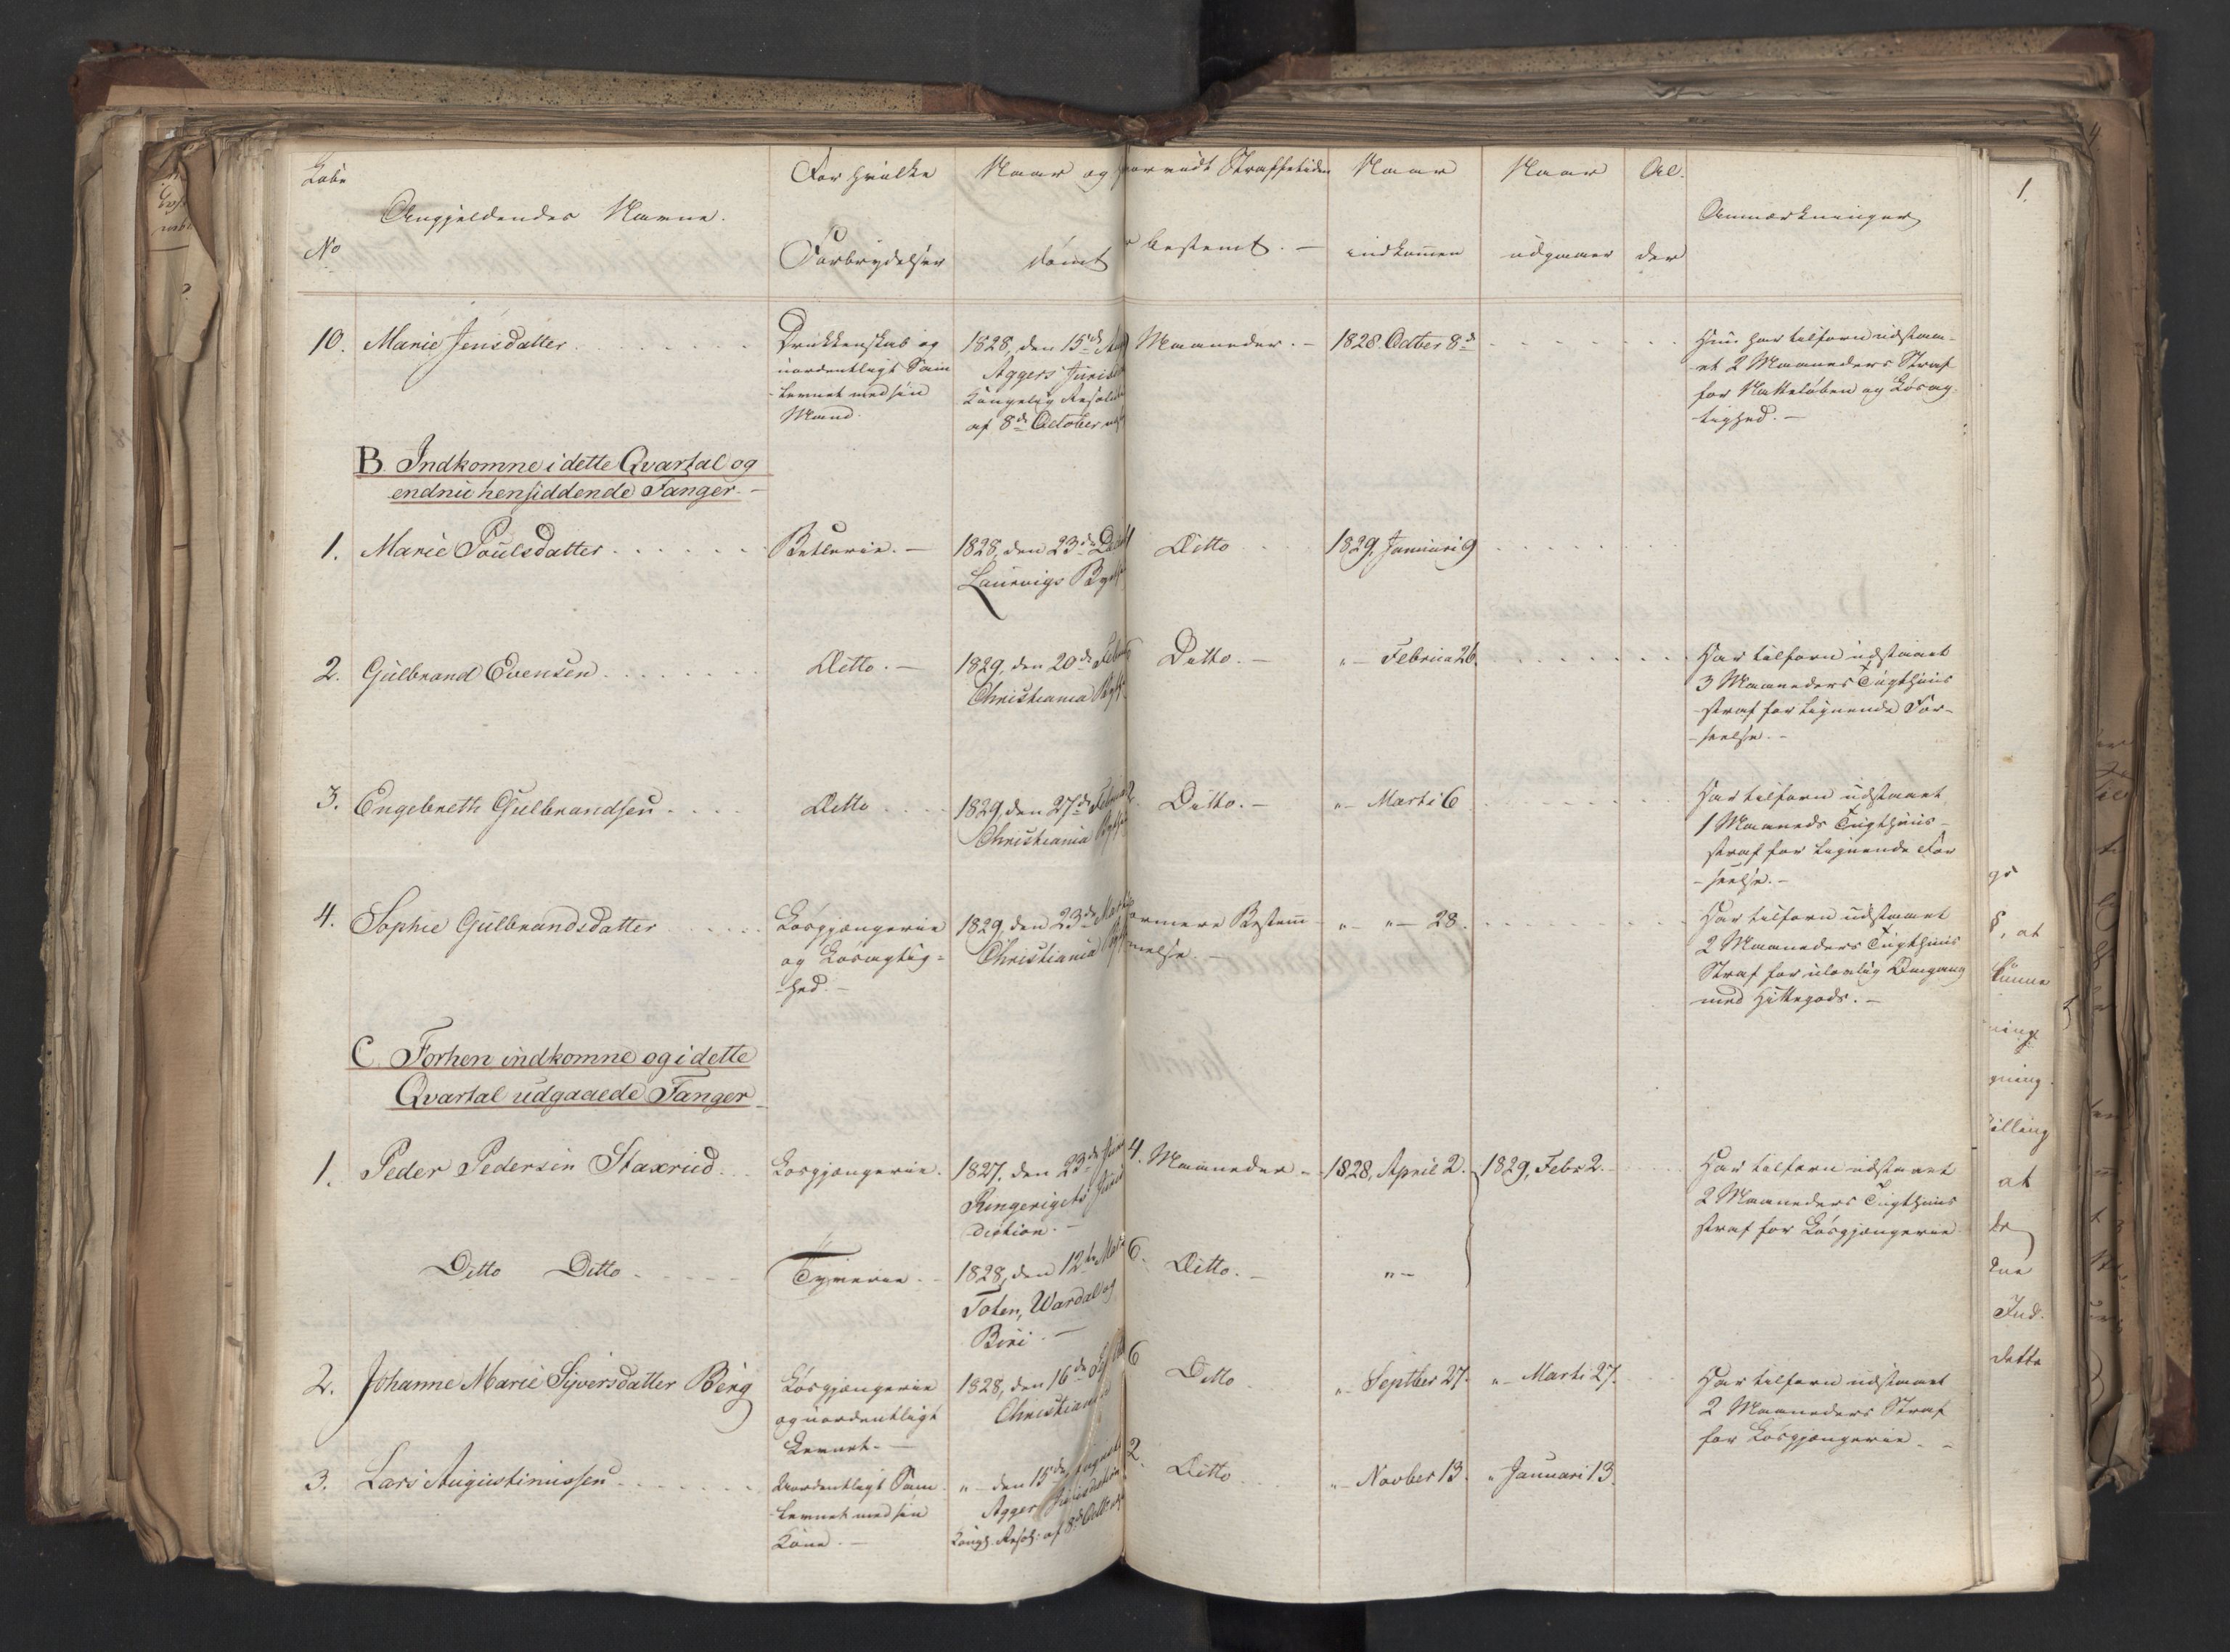 Løbe
No
Angjeldendes Navne.
For hvilke
Forbrydelser
Naar og
dømt
hvorvidt Straffetiden
bestemt. —
Naar
indkommen
Naar
udgaaer
Al-
der
Anmærkninger
1.
10. Marie Jensdatter
Drukkenskab og
uordentligt Sam
-levnet med sin
Mand.
1828, den 15de Aug
Aggers Juris
Kongelig Resolut
af 8de October
Maaneder. —
1828 Octber 8de
Hun har tilforn udstaa-
-et 2 Maaneders Straf
for Natteløben og Løsag-
-tighed. —
B. Indkomne i dette Qvartal og
endnu hensiddende Fanger. —
1. Marie Poulsdatter
Betlerie. —
1828, den 23de Dec
Laurvigs Bye
Ditto
1829, Januari 9
2. Gulbrand Evensen
Ditto. —
1829, den 20de Febru
Christiania Byef
Ditto. —
"— Februa 26.
Har tilforn udstaaet
3 Maaneders Tugthuus
-straf for lignende For-
-seelse. —
3. Engebreth Gulbrandsen
Ditto
1829, den 27de Februa
Christiania Byef
2. Ditto. —
"— Marti 6
Har tilforn udstaaet
1 Maaneds Tugthuus-
straf for lignende For
-seelse. —
4. Sophie Gulbrandsdatter
Løsgjængerie
og Løsagtig-
-hed. —
1829, den 23de Mar
Christiania Byef
nærmere Bestem-
melse. —
"— "— 28.
Har tilforn udstaaet
2 Maaneders Tugthuus
Straf for ulovlig Omgang
med Hittegods. —
C. Forhen indkomne og i dette
Qvartal udgaaede Fanger —
1. Peder Pedersen Staxrud
Løsgjængerie.
1827, den 23de Jun
Ringerigets Juris
diction. —
4. Maaneder —
1828, April 2.
1829, Febr 2.
Har tilforn udstaaet
2 Maaneders Tugthuus
straf for Løsgjængerie
Ditto Ditto
Tyverie. —
1828, den 12te Mar
Toten, Wardal og
Biri. —
6. Ditto. —
"—
2. Johanne Marie Sÿversdatter Berg
Løsgjængerie
og uordentligt
Levnet. —
1828, den 16de
Christiania
6 Ditto
"— Septber 27.
"— Marti 27.
Har tilforn udstaaet
2 Maaneders Straf
for Løsgjængerie. —
3. Lars Augustinussen
Uordentligt Sam-
-levnet med sin
Kone. —
"— den 15de August
Aggers Jurisdiction
Kongl. Resol: af 8de Octb
2. Ditto
"— Novber 13.
" Januari 13.
at
kunne
ning
at
Ind-
dette